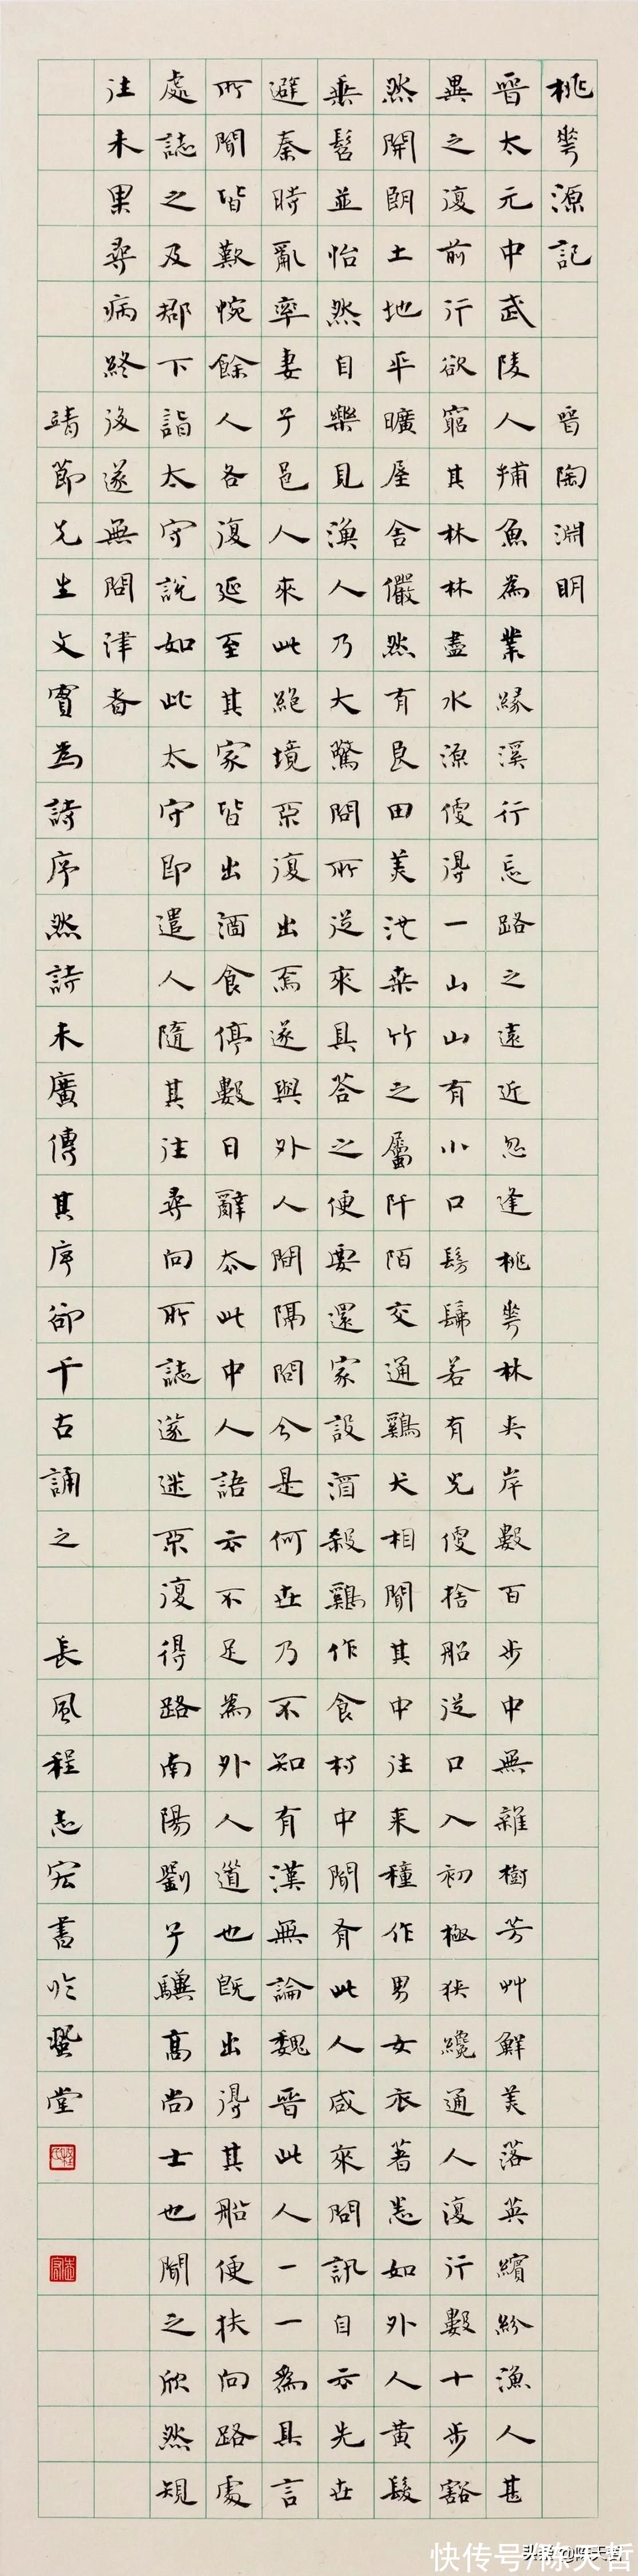 桃華源記 晉陶淵明
晉太元中武陵人捕魚為業緣溪行忘路之遠近忽逢桃華林夾岸數百步中無雜樹芳艸鮮美落英繽紛漁人甚
異之復前行欲窮其林林盡水源便得一山山有小口髣髴若有光便捨船從口入初極狹纔通人復行數十步豁
然開朗土地平曠屋舍儼然有良田美池桑竹之屬阡陌交通鷄犬相聞其中往來種作男女衣著悉如外人黃髮
垂髫並怡然自樂見漁人乃大驚問所從來具答之便要還家設酒殺鷄作食村中聞有此人咸來問訊自云先世
避秦時亂率妻子邑人來此絕境不復出焉遂與外人間隔問今是何世乃不知有漢無論魏晉此人一一為具言
所聞皆歎惋餘人各復延至其家皆出酒食停數日辭去此中人語云不足為外人道也既出得其船便扶向路處
處誌之及郡下詣太守說如此太守即遣人隨其往尋向所誌遂迷不復得路南陽劉子驥高尚士也聞之欣然規
往未果尋病終後遂無問津者
靖節先生文實為詩序然詩未廣傳其序卻千古誦之 長風程志宏書
堂
快传号/陈天哲